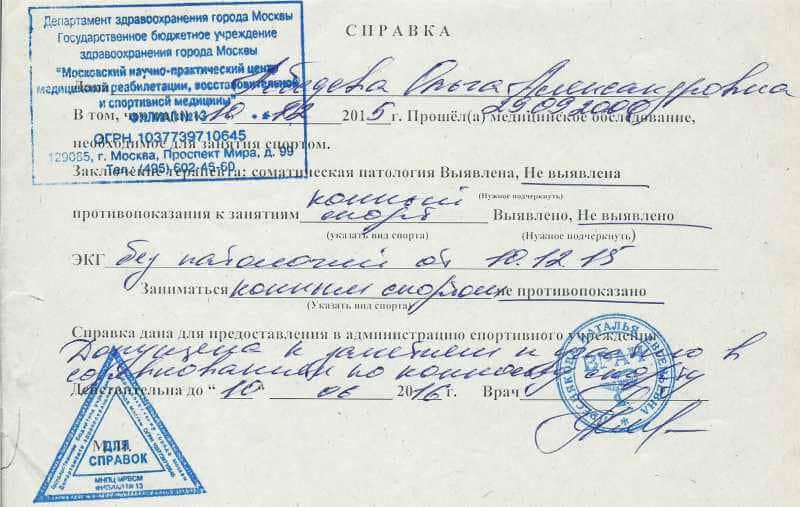 Департамент здравоохранения города Москвы
Государственное бюджетное учреждение
здравоохранения города Москвы
"Московский научно-практический центр
медицинской реабилитации, восстановительной
и спортивной медицины"
ФИЛИАЛ № 13
ОГРН 1037739710645
129085, г. Москва, Проспект Мира, д. 99
Тел. (495) 602-45-60
СПРАВКА
Ольга Александровна
29.09.2000
В том, 10 12 2015 г. Прошёл(а) медицинское обследование,
необходимое для занятия спортом.
Заключение терапевта: соматическая патология Выявлена, Не выявлена
(Нужное подчеркнуть)
противопоказания к занятиям конный спорт Выявлено, Не выявлено
(указать вид спорта) (Нужное подчеркнуть)
ЭКГ без патологий от 10.12.15
Заниматься конным спортом не противопоказано
(Указать вид спорта)
Справка дана для предоставления в администрацию спортивного учреждения
Допущена к занятиям и участию в
соревнованиях по конному спорту
Действительна до "10" 06 2016 г. Врач
НАТАЛЬЯ
ВРАЧ
М.П.
ДЛЯ
СПРАВОК
МНПЦ МРВСМ
ФИЛИАЛ № 13